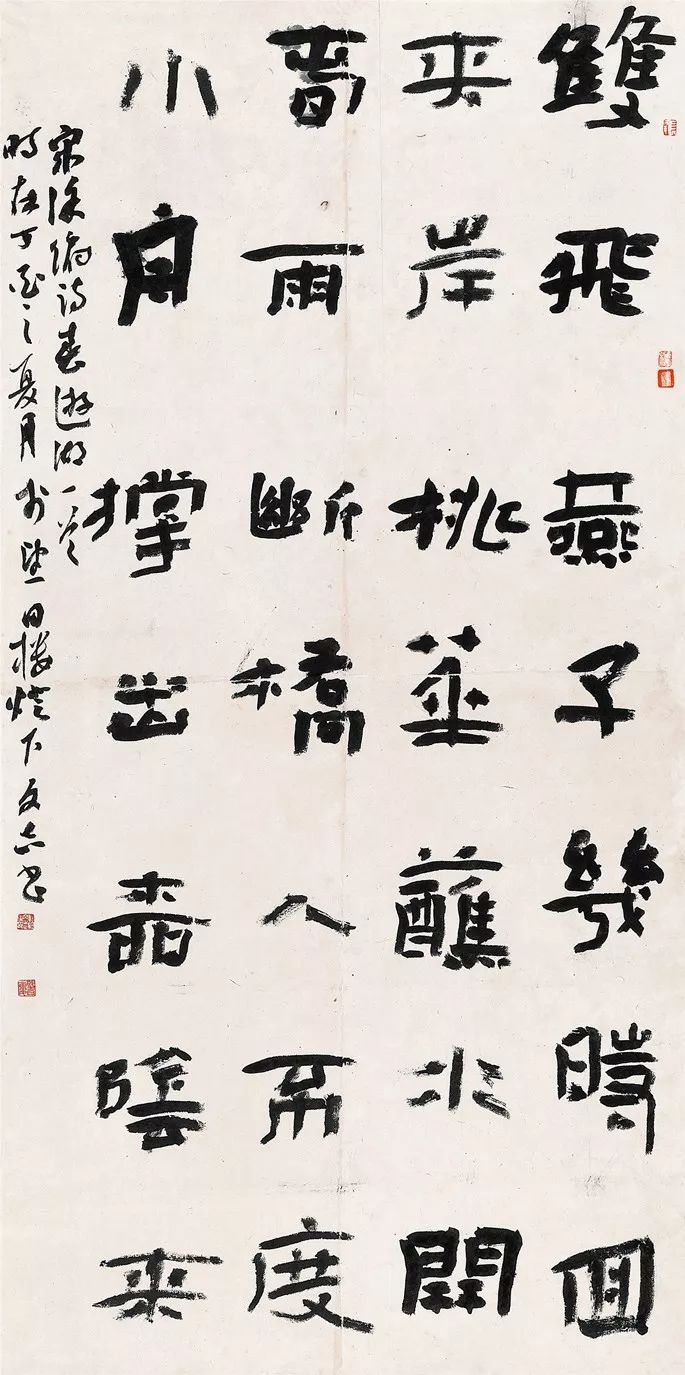 雙飛燕子幾時囬
夾岸桃華蘸水開
春雨斷橋人不度
小舟撑出桺陰来
宋徐俯詩春遊湖一首
時在丁酉之夏月於望日樓燈下友志書